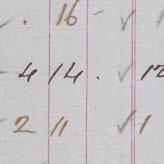 . 16 - ✓
- 4 14 . ✓ 12
2 11 ✓ 1